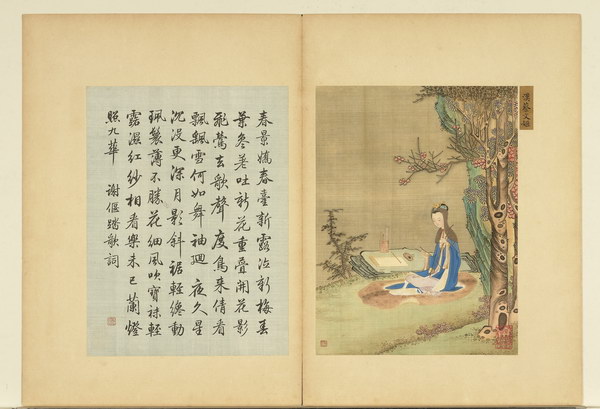 漢蔡文姬
春景嬌春臺新露泣新梅春
葉參差吐新花重疊開花影
飛鶯去歌聲度鳥來倩看
飄颻雪何如舞袖迴夜久星
沉沒更深月影斜裾輕纔動
珮鬟薄不勝花細風吹寶袜輕
露濕紅紗相看樂未已蘭燈
照九華 謝偃踏歌詞